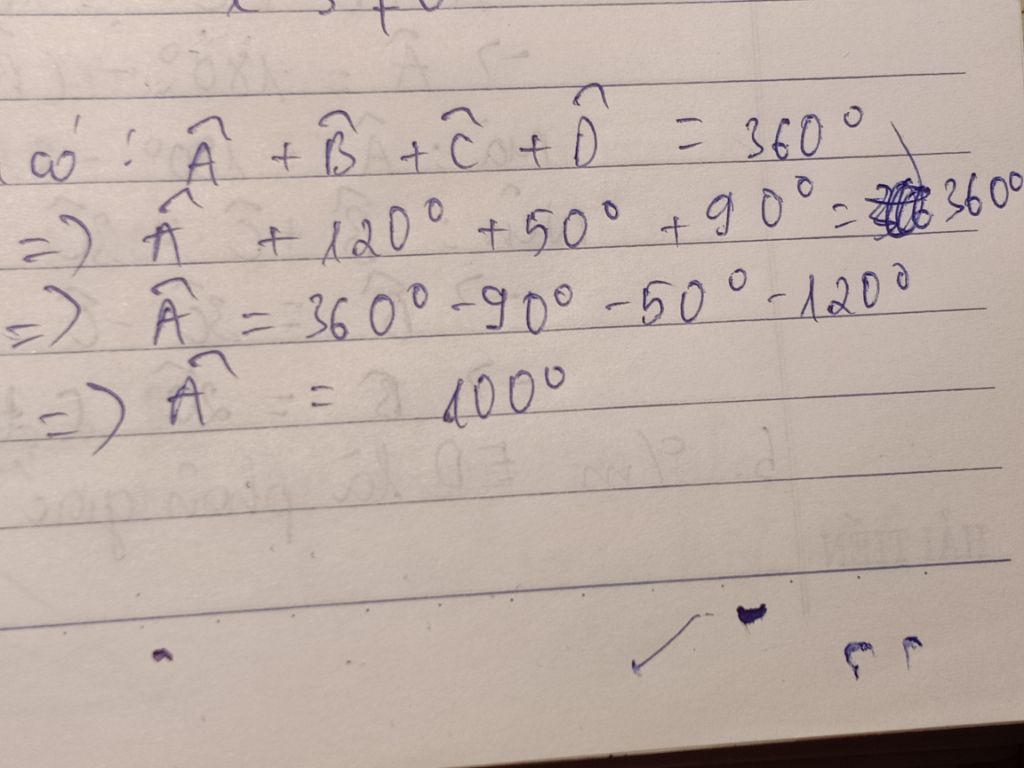 có : Â + B̂ + Ĉ + D̂ = 360°
=> Â + 120° + 50° + 90° = 360°
=> Â = 360° - 90° - 50° - 120°
=> Â = 100°